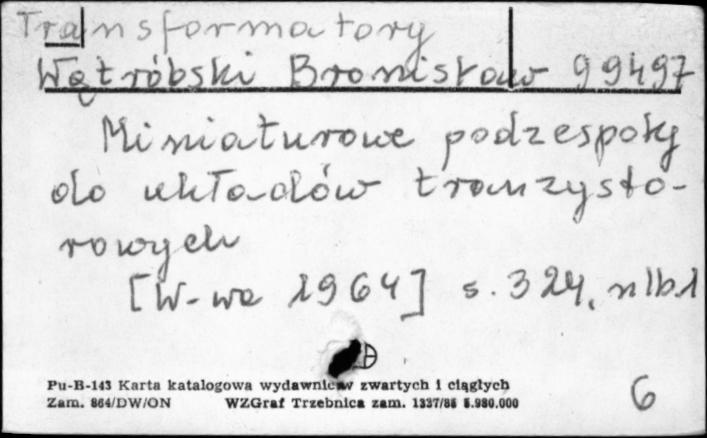 Transformatory
Wątróbski Bronisław 99497
Miniaturowe podzespoły
do układów tranzysto-
rowych
[W-wa 1964] s. 324, nlb.1
Pu-B-143 Karta katalogowa wydawnictw zwartych i ciągłych
Zam. 864/DW/ON WZGraf Trzebnica zam. 1337/86 5.980.000
6